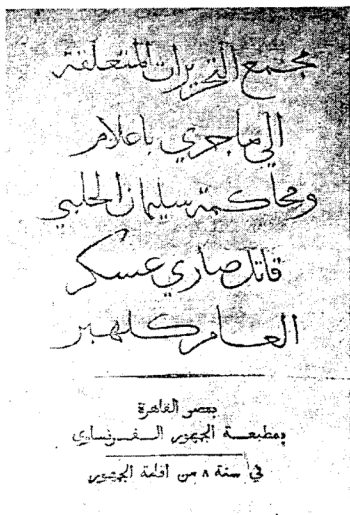 مجمع التحريرات المتعلقة
الي ماجري باعلام
ومحاكمة سليمان الحلبي
قاتل صاري عسكر
العام كلهبر
بمصر القاهرة
بمطبعة الجمهور الفرنساوي
في سنة ٨ من اقامة الجمهور